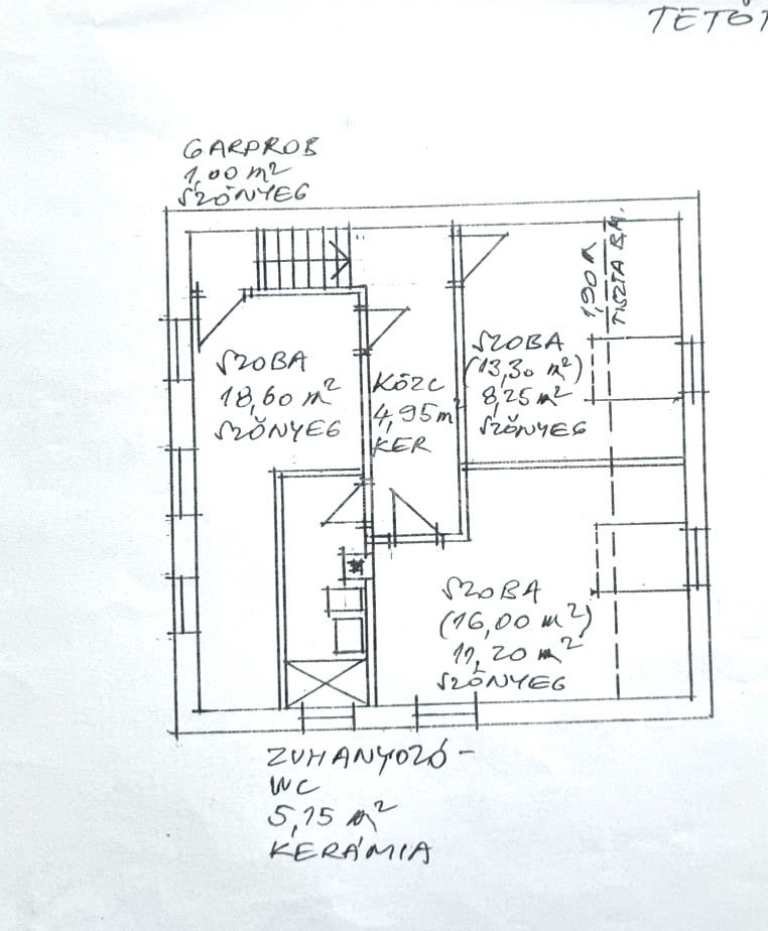 TETŐT
GARPROB
1,00 m²
SZŐNYEG
1,90 m
TISZTA B.M.
SZOBA
18,60 m²
SZŐNYEG
KÖZL
4,95 m²
KER
SZOBA
(13,30 m²)
8,25 m²
SZŐNYEG
SZOBA
(16,00 m²)
11,20 m²
SZŐNYEG
ZUHANYOZÓ-
WC
5,15 m²
KERÁMIA